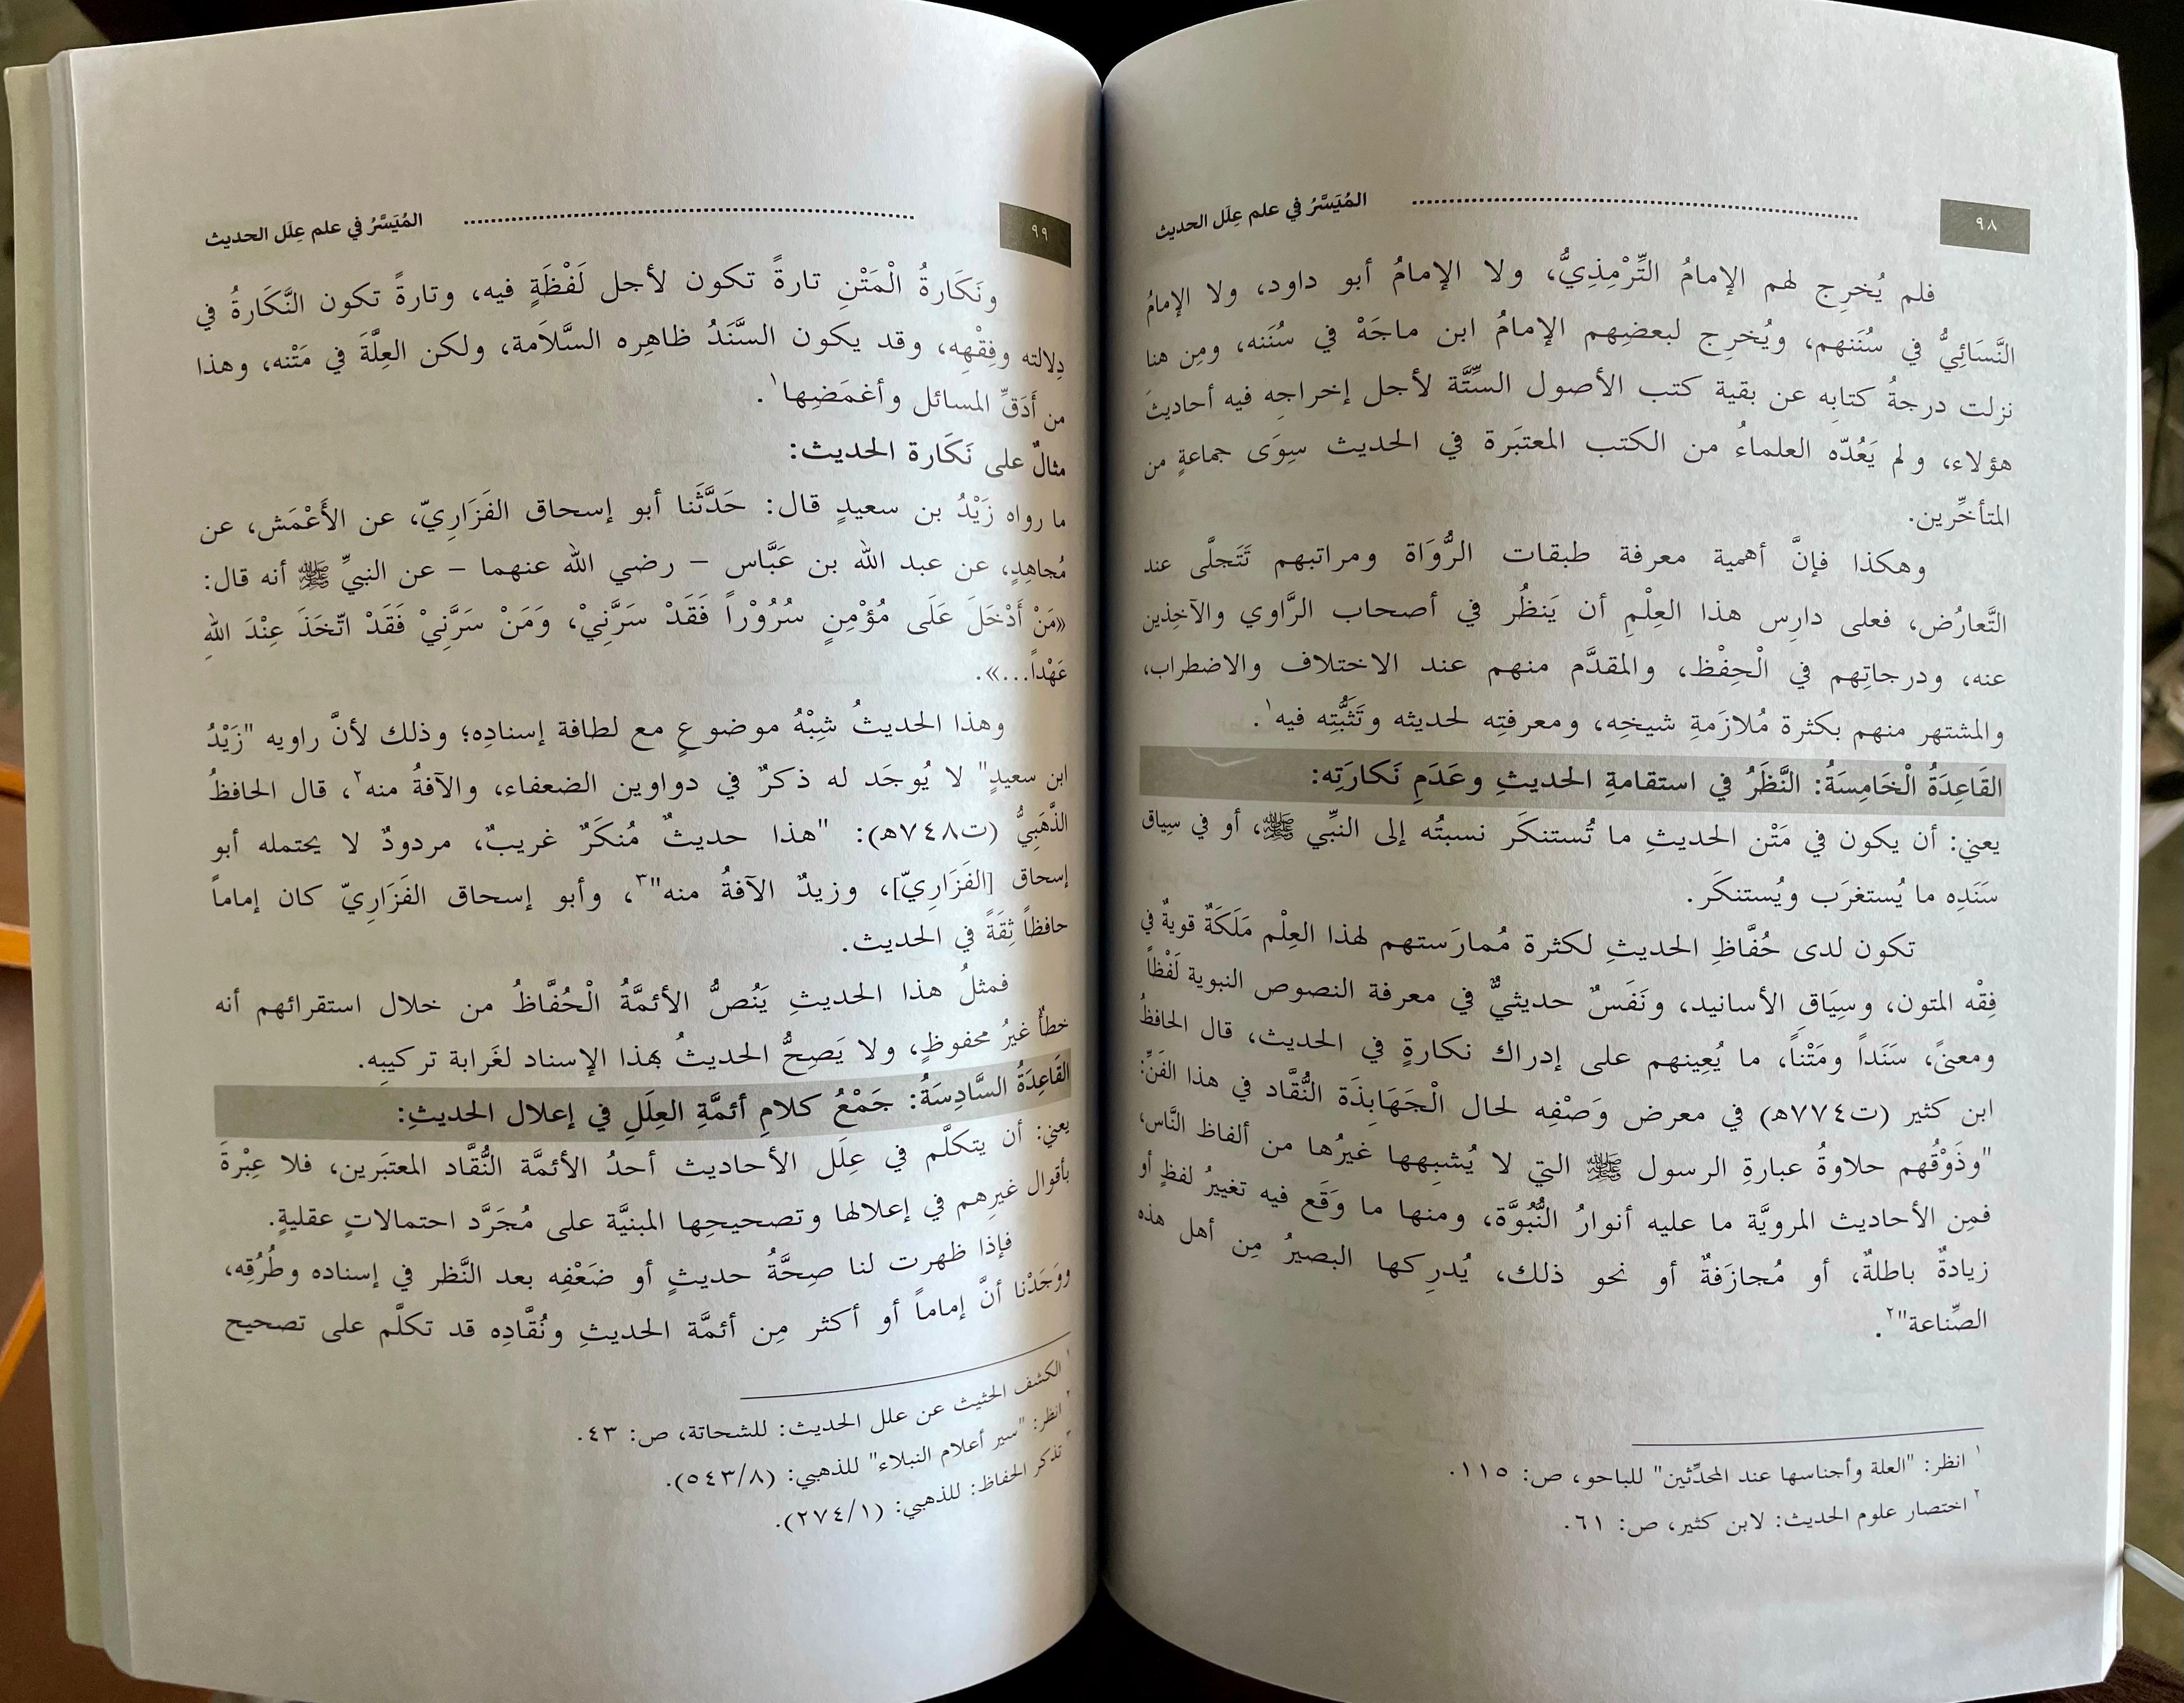 ٩٨ المُيَسَّرُ في علم عِلَل الحديث
فلم يُخرِج لهم الإمامُ التِّرْمِذِيُّ، ولا الإمامُ أبو داود، ولا الإمامُ
النَّسَائِيُّ في سُنَنهم، ويُخرِج لبعضِهم الإمامُ ابن ماجَهْ في سُنَنه، ومِن هنا
نزلت درجةُ كتابِه عن بقية كتب الأصول السِّتَّة لأجل إخراجِه فيه أحاديثَ
هؤلاء، ولم يَعُدّه العلماءُ من الكتب المعتبَرة في الحديث سِوَى جماعةٍ من
المتأخِّرين.
وهكذا فإنَّ أهمية معرفة طبقات الرُّوَاة ومراتبهم تَتَجلَّى عند
التَّعارُض، فعلى دارِس هذا العِلْمِ أن يَنظُر في أصحاب الرَّاوي والآخِذين
عنه، ودرجاتِهم في الْحِفْظ، والمقدَّم منهم عند الاختلاف والاضطراب،
والمشتهر منهم بكثرة مُلازَمةِ شيخِه، ومعرفتِه لحديثه وتَثَبُّتِه فيه¹.
القَاعِدَةُ الْخَامِسَةُ: النَّظَرُ في استقامةِ الحديثِ وعَدَمِ نَكارَتِه:
يعني: أن يكون في مَتْن الحديثِ ما تُستنكَر نسبتُه إلى النبِّي ﷺ، أو في سِياق
سَنَدِه ما يُستغرَب ويُستنكَر.
تكون لدى حُفَّاظِ الحديثِ لكثرة مُمارَستهم لهذا العِلْم مَلَكَةٌ قويةٌ في
فِقْه المتون، وسِيَاقِ الأسانيد، ونَفَسٌ حديثيٌّ في معرفة النصوص النبوية لَفْظاً
ومعنىً، سَنَداً ومَتْناً، ما يُعِينهم على إدراك نكارةٍ في الحديث، قال الحافظُ
ابن كثير (ت٧٧٤هـ) في معرض وَصْفِه لحال الْجَهَابِذَة النُّقَّاد في هذا الفَنِّ:
"وذَوْقُهم حلاوةُ عبارةِ الرسول ﷺ التي لا يُشبِهها غيرُها من ألفاظ النَّاس،
فمِن الأحاديث المرويَّة ما عليه أنوارُ النُّبُوَّة، ومنها ما وَقَع فيه تغييرُ لفظٍ أو
زيادةٌ باطلةٌ، أو مُجازَفةٌ أو نحو ذلك، يُدرِكها البصيرُ مِن أهل هذه
الصِّناعة"².
¹ انظر: "العلة وأجناسها عند المحدِّثين" للباحو، ص: ١١٥.
² اختصار علوم الحديث: لابن كثير، ص: ٦١.
٩٩ المُيَسَّرُ في علم عِلَل الحديث
ونَكَارةُ الْمَتْنِ تارةً تكون لأجل لَفْظَةٍ فيه، وتارةً تكون النَّكَارةُ في
دِلالته وفِقْهِه، وقد يكون السَّنَدُ ظاهِره السَّلاَمة، ولكن العِلَّةَ في مَتْنه، وهذا
من أَدَقِّ المسائل وأغمَضِها¹.
مثالٌ على نَكَارة الحديث:
ما رواه زَيْدُ بن سعيدٍ قال: حَدَّثَنا أبو إسحاق الفَزَارِيّ، عن الأَعْمَش، عن
مُجاهِدٍ، عن عبد الله بن عَبَّاس – رضي الله عنهما – عن النبيِّ ﷺ أنه قال:
«مَنْ أَدْخَلَ عَلَى مُؤْمِنٍ سُرُوْراً فَقَدْ سَرَّنِيْ، وَمَنْ سَرَّنِيْ فَقَدْ اتّخَذَ عِنْدَ اللهِ
عَهْداً...».
وهذا الحديثُ شِبْهُ موضوعٍ مع لطافة إسنادِه؛ وذلك لأنَّ راويه "زَيْدُ
ابن سعيدٍ" لا يُوجَد له ذكرٌ في دواوين الضعفاء، والآفةُ منه²، قال الحافظُ
الذَّهَبِيُّ (ت٧٤٨هـ): "هذا حديثٌ مُنكَرٌ غريبٌ، مردودٌ لا يحتمله أبو
إسحاق [الفَزَارِيّ]، وزيدٌ الآفةُ منه"³، وأبو إسحاق الفَزَارِيّ كان إماماً
حافظاً ثِقَةً في الحديث.
فمثلُ هذا الحديثِ يَنُصُّ الأئمَّةُ الْحُفَّاظُ من خلال استقرائهم أنه
خطأٌ غيرُ محفوظٍ، ولا يَصِحُّ الحديثُ بهذا الإسناد لغَرابة تركيبِه.
القَاعِدَةُ السَّادِسَةُ: جَمْعُ كلامِ أئمَّةِ العِلَلِ في إعلال الحديثِ:
يعني: أن يتكلَّم في عِلَل الأحاديث أحدُ الأئمَّة النُّقَّاد المعتبَرين، فلا عِبْرةَ
بأقوال غيرِهم في إعلالها وتصحيحِها المبنيَّة على مُجَرَّد احتمالاتٍ عقليةٍ.
فإذا ظهرت لنا صِحَّةُ حديثٍ أو ضَعْفِه بعد النَّظر في إسناده وطُرُقِه،
ووَجَدْنا أنَّ إماماً أو أكثر مِن أئمَّة الحديثِ ونُقَّادِه قد تكلَّم على تصحيح
¹ الكشف الحثيث عن علل الحديث: للشحاتة، ص: ٤٣.
² انظر: "سير أعلام النبلاء" للذهبي: (٥٤٣/٨).
³ تذكر الحفاظ: للذهبي: (٢٧٤/١).